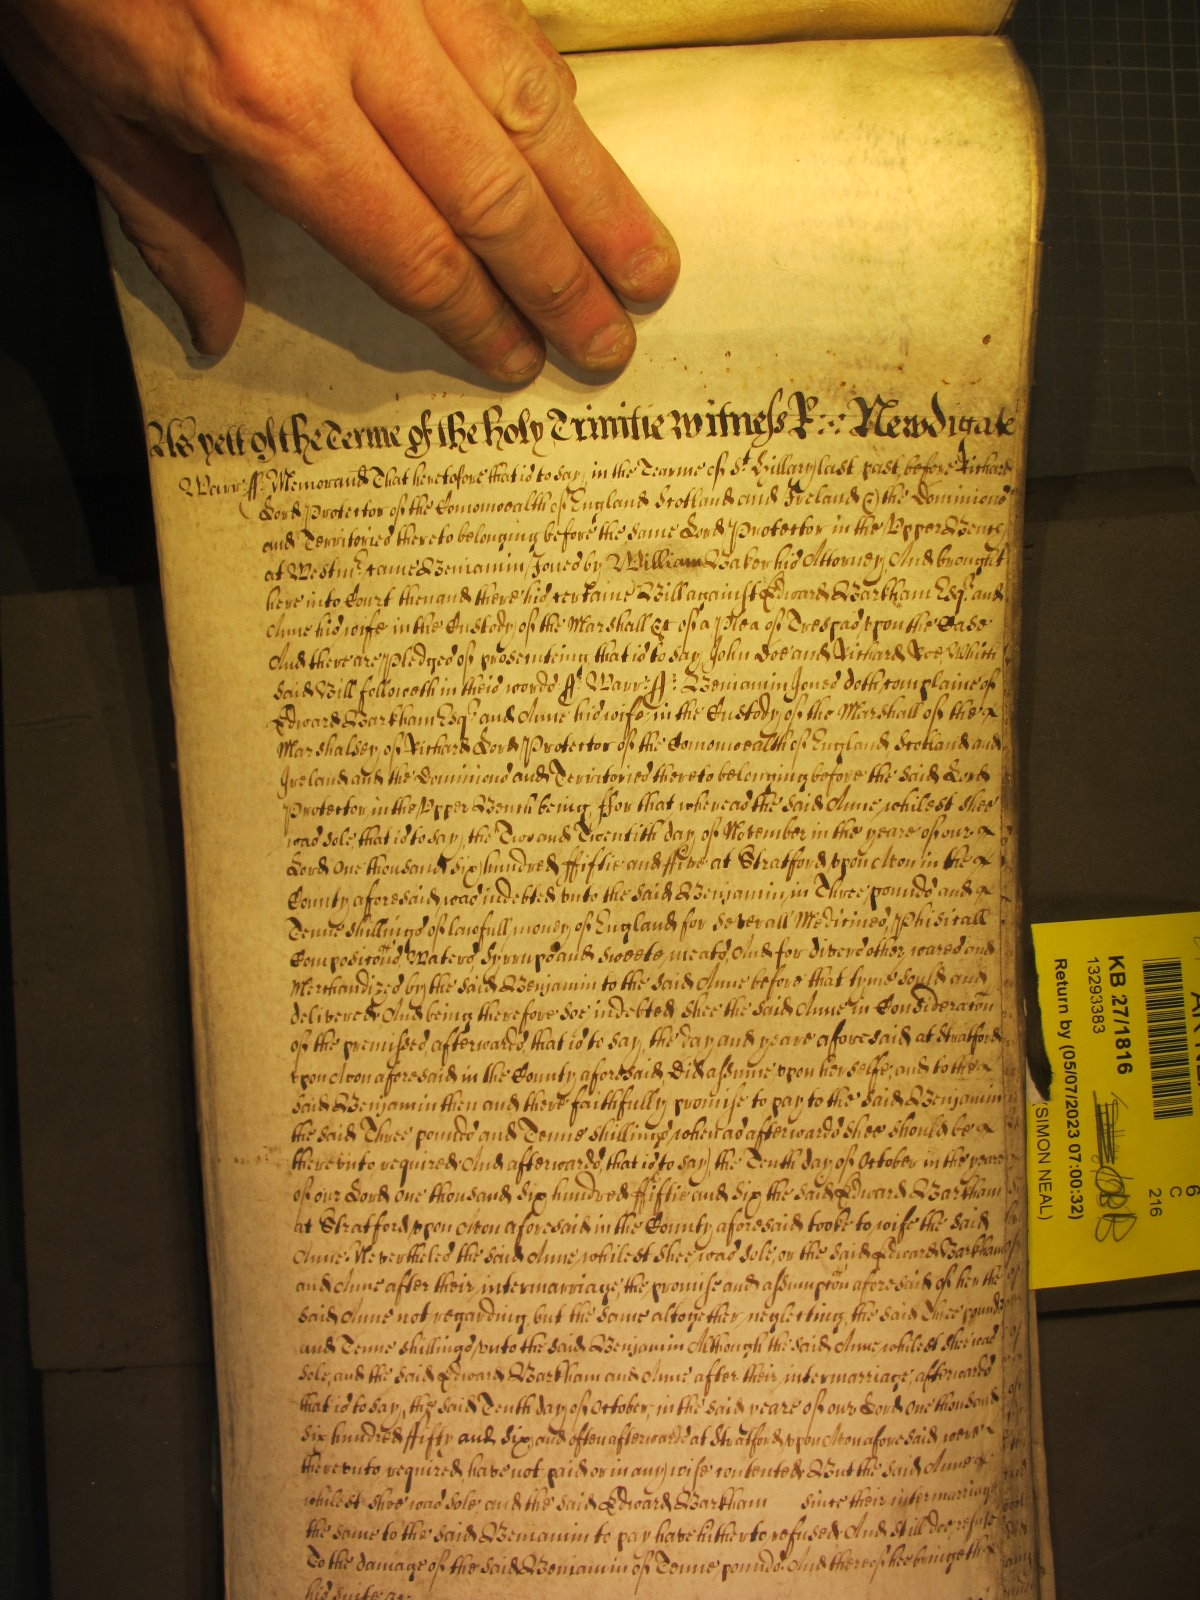 As yett of the Terme of the holy Trinitie witness R: Newdigate
Warr: ss: Memorand That heretofore that is to say, in the Tearme of St. Hillary last past before Richard
Lord Protector of the Comonwealth of England Scotland and Ireland & the Dominions
and Territories thereto belonging before the same Lord Protector in the Upper Bench
at Westmr. came Beniamin Jones by William Baker his Attorney, And brought
here into Court then and there his certaine Bill against Edward Barkham Esqr. and
Anne his wife in the Custody of the Marshall &c of a Plea of Trespas upon the Case
And there are Pledges of prosecuteing that is to say John Doe and Richard Roe, Which
said Bill followeth in theis words ss: Warr: ss: Beniamin Jones doth complaine of
Edward Barkham Esqr. and Anne his wife, in the Custody of the Marshall of the
Marshalsey of Richard Lord Protector of the Comonwealth of England Scotland and
Ireland and the Dominions and Territories thereto belonging before the said Lord
Protector in the Upper Bench being, ffor that whereas the said Anne, whilest shee
was sole, that is to say, the Two and Twentith day of November in the yeare of our
Lord One thousand six hundred ffiftie and ffive at Stratford vpon Avon in the
County aforesaid, was indebted vnto the said Beniamin, in Three pounds and
Tenne shillings of lawfull money of England for severall Medicines, Phisicall
Compositons, Waters, Syrrups and sweete meats, And for divers other wares and
Merchandizes by the said Beniamin to the said Anne before that tyme sould and
delivered, And being therefore soe indebted shee the said Anne in Consideraton
of the premisses afterwards, that is to say, the day and yeare aforesaid at Stratford
vpon Avon aforesaid in the County aforesaid, did assume vpon herselfe, and to the
said Beniamin then and there faithfully promise to pay to the said Beniamin
the said Three pounds and Tenne shillings, when as afterwards shee should be
therevnto required, And afterwards, that is to say) the Tenth day of October in the yeare
of our Lord One thousand Six hundred ffiftie and six the said Edward Barkham
at Stratford vpon Avon aforesaid in the County aforesaid tooke to wife the said
Anne: Neverthelesse the said Anne, whilest shee was sole, or the said Edward Barkham
and Anne after their intermarriage, the promise and assumpton aforesaid of her the
said Anne not regarding, but the same altogether neglecting, the said Three pounds
and Tenne shillings, vnto the said Beniamin Although the said Anne, whilest shee was
sole, and the said Edward Barkham and Anne after their intermarriage, afterwards
that is to say, the said Tenth day of October, in the said yeare of our Lord One thousand
Six hundred ffifty and Six, and often afterwards at Stratford vpon Avon aforesaid were
therevnto required, have not paid or in any wise contented, But the said Anne
whilest shee was sole and the said Edward Barkham since their intermarriage
the same to the said Beniamin to pay have hitherto refused And still doe refuse
To the damage of the said Beniamin of Tenne pounds: And thereof hee bringeth
his suite &c:
KB 27/1816
13293383
Return by (05/07/2023 07:00:32)
(SIMON NEAL)
6
C
216